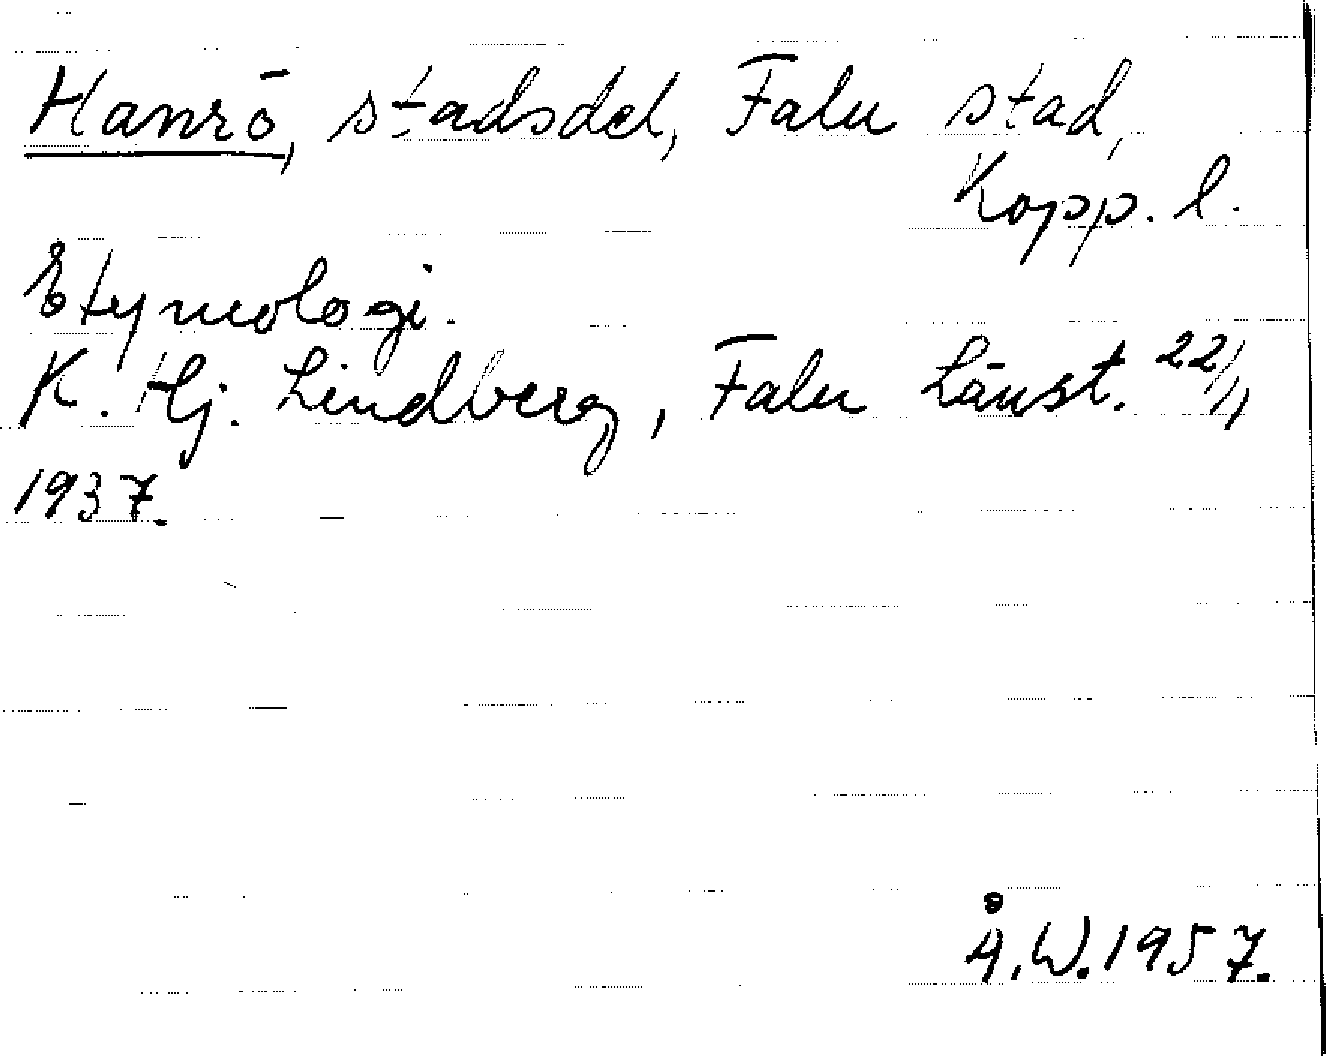 Hanrö, stadsdel, Falu stad,
Kopp. l.
Etymologi.
K. Hj. Lindberg, Falu Länst. 22/1
1937.
Å.W.1957.